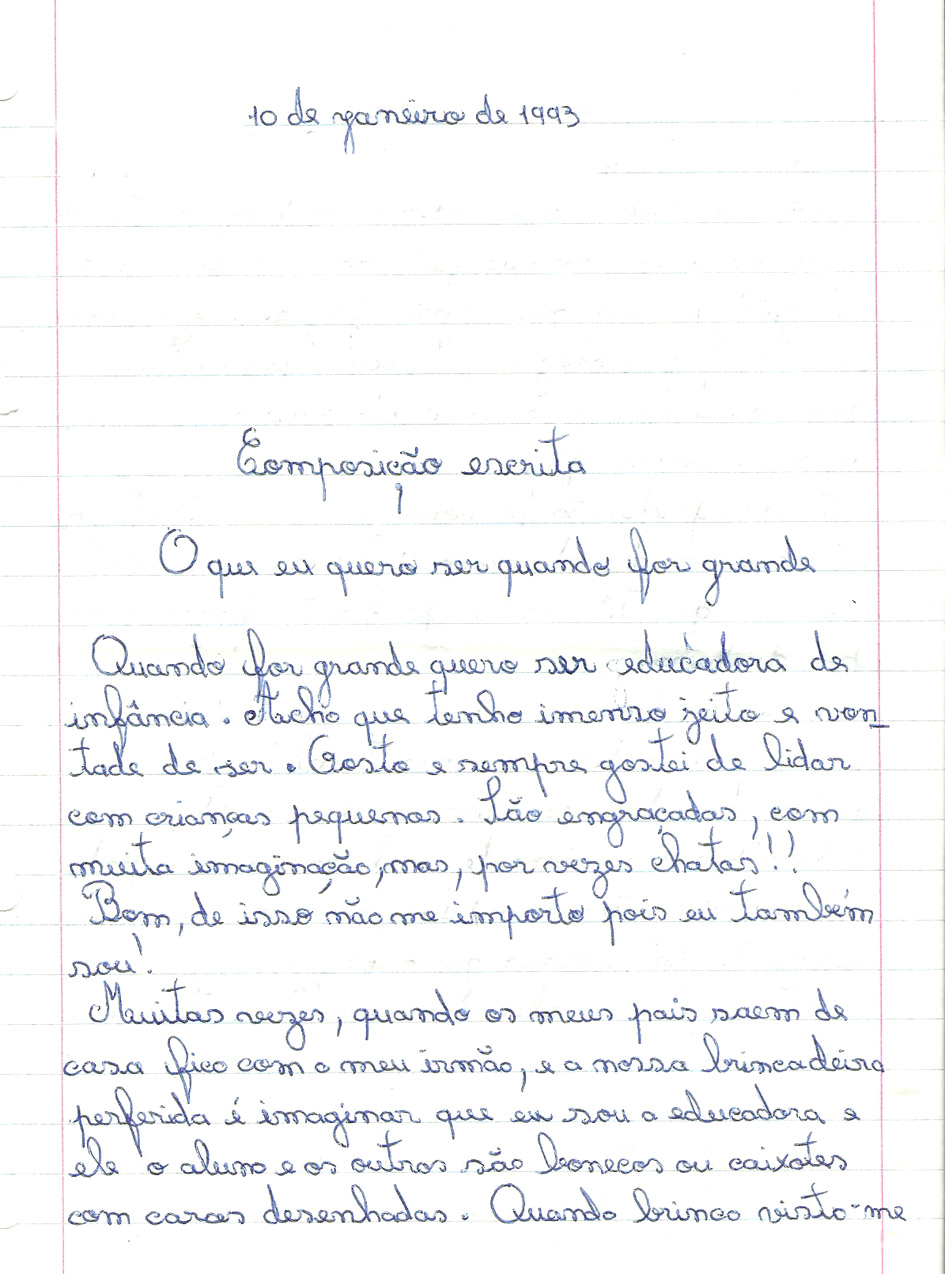 10 de janeiro de 1993
Composição escrita
O que eu quero ser quando for grande
Quando for grande quero ser educadora de
infância. Acho que tenho imenso jeito e von_
tade de ser. Gosto e sempre gostei de lidar
com crianças pequenas. São engraçadas, com
muita imaginação, mas, por vezes chatas!!
Bom, de isso não me importo pois eu também
sou!
Muitas vezes, quando os meus pais saem de
casa fico com o meu irmão, e a nossa brincadeira
perferida é imaginar que eu sou a educadora e
ele o aluno e os outros são bonecos ou caixotes
com caras desenhadas. Quando brinco visto-me